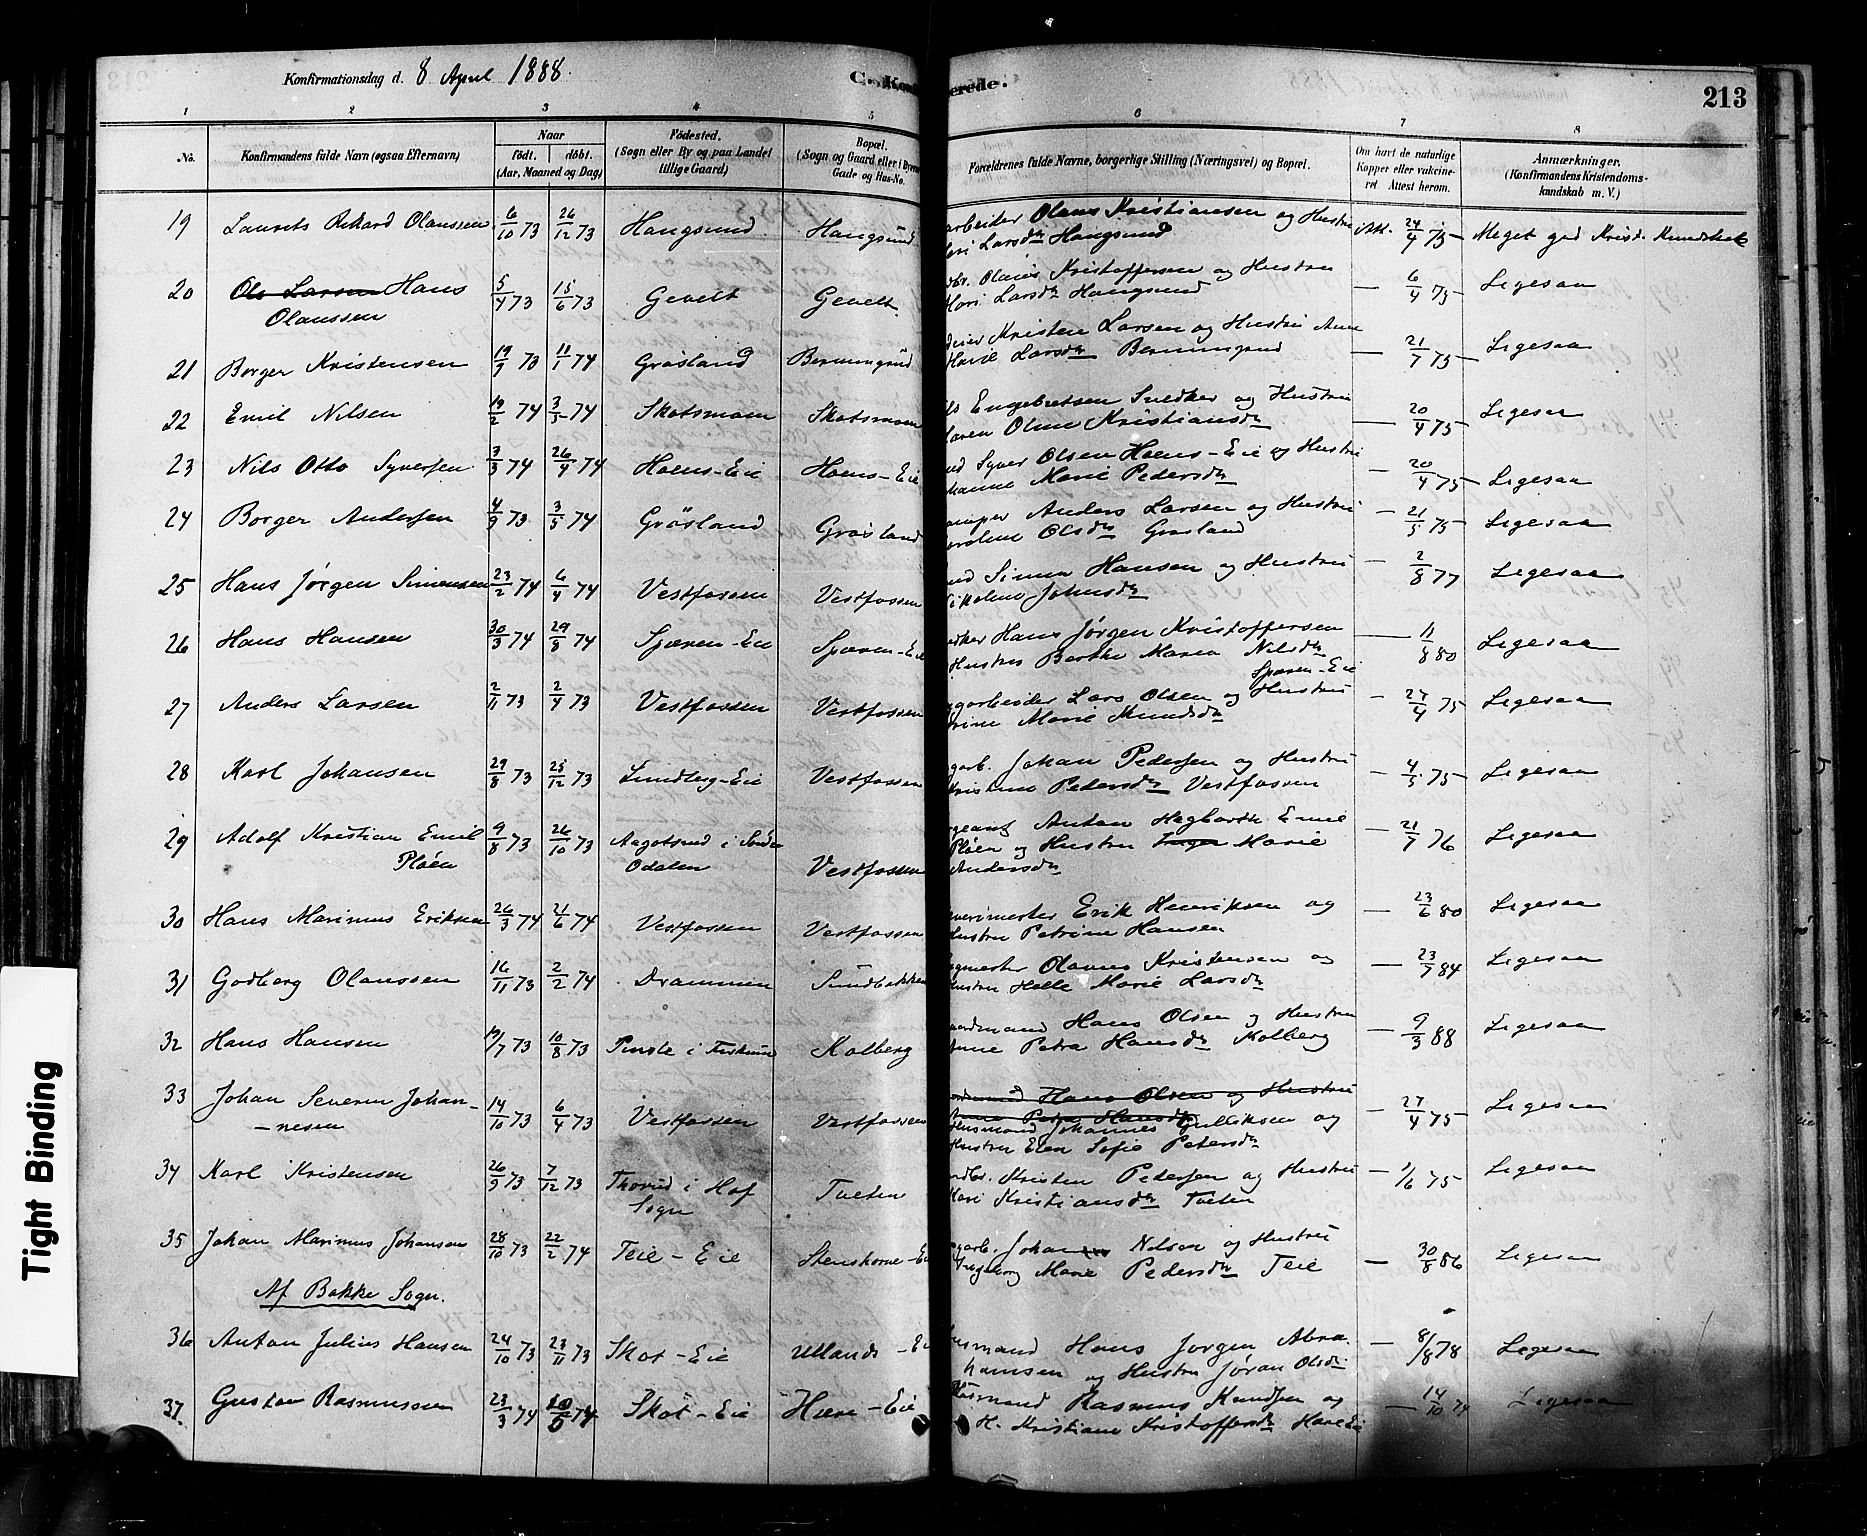 Konfirmationsdag d. 8 April 1888.
C. Konf
erede.
213
1 2 3 4 5 6 7 8
No.
Konfirmandens fulde Navn (ogsaa Efternavn)
Naar
födt. döbt.
(Aar, Maaned og Dag)
Födested.
(Sogn eller By og paa Landet
tillige Gaard)
Bopæl.
(Sogn og Gaard eller i Byerne
Gade og Hus-No.
Forældrenes fulde Navne, borgerlige Stilling (Næringsvei) og Bopæl.
Om havt de naturlige
Kopper eller vakcine-
ret Attest herom.
Anmærkninger.
(Konfirmandens Kristendoms-
kundskab m. V.)
19 Laurits Rikard Olanssen 6/10 73 26/12 73 Haugsund Haugsund arbeider Olans Kristiansen og Hustru Att. 24/4 75 Meget god Krisd. Kundskab
Lars dr Haugsund
20 Ole Larsen Hans 5/4 73 15/6 73 Gevelt Gevelt Olans Kristoffersen og Hustru — 6/4 75 Ligesaa
Olanssen Mari Lars dr Haugsund
21 Borger Kristensen 19/9 73 11/1 74 Grøsland Kristen Larsen og Hustru Anne — 21/7 75 Ligesaa
Marie Lars dr
22 Emil Nilsen 19/2 74 3/5 74 Skotsmoen Skotsmoen ls Engebretsen Snedker og Hustru — 20/4 75 Ligesaa
Maren Oline Kristians dr
23 Nils Otto Syversen 3/3 74 26/4 74 Hoens-Eie Hoens-Eie Syver Olsen Hoens-Eie og Hustru — 20/4 75 Ligesaa
hanne Marie Peders dr
24 Borger Andersen 4/9 73 3/5 74 Grøsland Grøsland Anders Larsen og Hustru — 21/5 75 Ligesaa
Ols dr Grøsland
25 Hans Jørgen Simensen 23/2 74 6/4 74 Vestfossen Vestfossen Simen Hansen og Hustru — 2/8 77 Ligesaa
Nikoline Johns dr
26 Hans Hansen 30/3 74 29/8 74 Spæren-Eie Spæren-Eie Hans Jørgen Kristoffersen — 11/8 80 Ligesaa
Hustru Berthe Maren Nils dr
Spæren-Eie
27 Anders Larsen 2/11 73 2/4 73 Vestfossen Vestfossen garbeider Lars Olsen og Hustru — 27/4 75 Ligesaa
rine Marie Knuds dr
28 Karl Johansen 29/8 73 25/12 73 Lundberg-Eie Vestfossen garb. Johan Pedersen og Hustru — 4/5 75 Ligesaa
Kristine Peters dr Vestfossen
29 Adolf Kristian Emil 9/8 73 26/10 73 Aagotsrud i Søndre Anton Hegbarth Emil — 21/7 76 Ligesaa
Pløen Odalen Vestfossen Pløen og Hustru Marie
Anders dr
30 Hans Marinus Eriksen 26/3 74 21/6 74 Vestfossen Vestfossen verimester Erik Henriksen og — 23/6 80 Ligesaa
Hustru Petrine Hansen
31 Godborg Olanssen 16/11 73 2/2 74 Drammen Sundbakken gmester Olanus Kristensen og — 23/7 84 Ligesaa
Hustru Helle Marie Lars dr
32 Hans Hansen 17/7 73 10/8 73 Kolberg aardmand Hans Olsen og Hustru — 9/3 88 Ligesaa
Anne Petra Hans dr Kolberg
33 Johan Severin Johan- 14/10 73 6/4 73 Vestfossen Vestfossen Hans Olsen og Hustru — 27/4 75 Ligesaa
nesen Anne Petra Hans dr
Husmand Johannes Gulliksen og
Hustru Elen Sofie Peters dr
34 Karl Kristensen 26/9 73 7/12 73 Thorud i Hof Tveten Kristen Pedersen og Hustru — 1/6 75 Ligesaa
Sogn Mari Kristians dr Tveten
35 Johan Marinus Johansen 28/10 73 22/2 74 Teie-Eie garb. Johan Nilsen og Hustru — 30/8 86 Ligesaa
Ingeborg Marie Peders dr Teie
Af Bakke Sogn.
36 Anton Julius Hansen 24/10 73 23/11 73 Skot-Eie Ullands-Eie usmand Hans Jørgen Abra- — 8/8 78 Ligesaa
hamsen og Hustru Jøran Ols dr
37. Gustav Rasmussen 23/3 74 74 Skot-Eie Hære-Eie Husmand Rasmus Knudsen og — 14/10 74 Ligesaa
H. Kristiane Kristoffers dr Hære Eie
Tight Binding